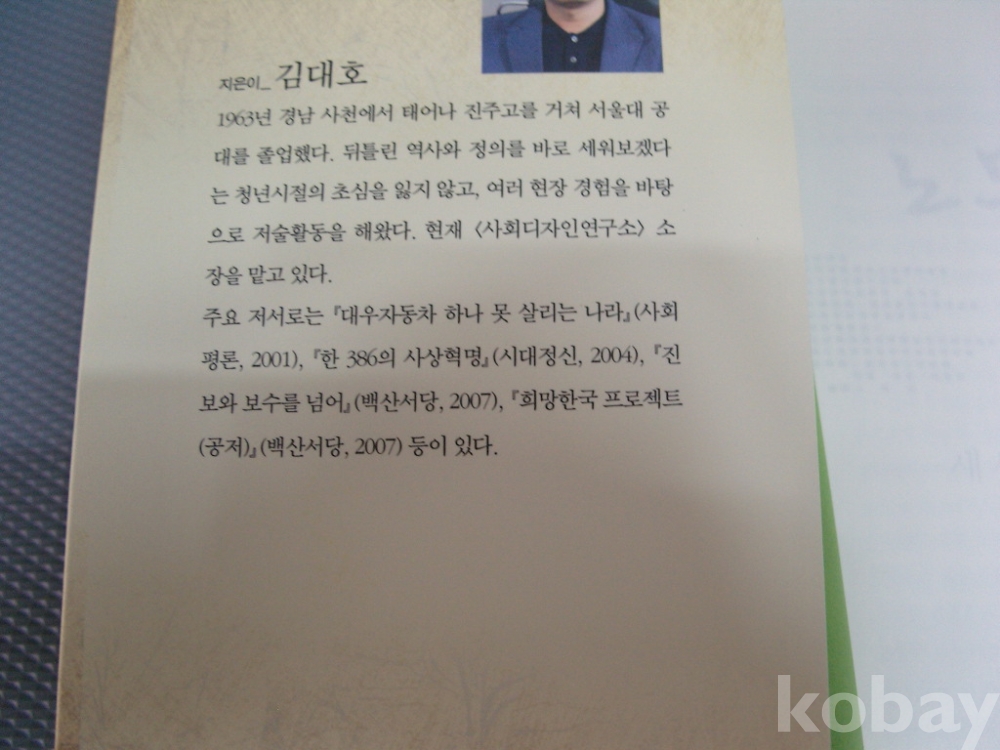 지은이_ 김대호
1963년 경남 사천에서 태어나 진주고를 거쳐 서울대 공
대를 졸업했다. 뒤틀린 역사와 정의를 바로 세워보겠다
는 청년시절의 초심을 잃지 않고, 여러 현장 경험을 바탕
으로 저술활동을 해왔다. 현재 〈사회디자인연구소〉 소
장을 맡고 있다.
주요 저서로는 『대우자동차 하나 못 살리는 나라』(사회
평론, 2001), 『한 386의 사상혁명』(시대정신, 2004), 『진
보와 보수를 넘어』(백산서당, 2007), 『희망한국 프로젝트
(공저)』(백산서당, 2007) 등이 있다.
kobay